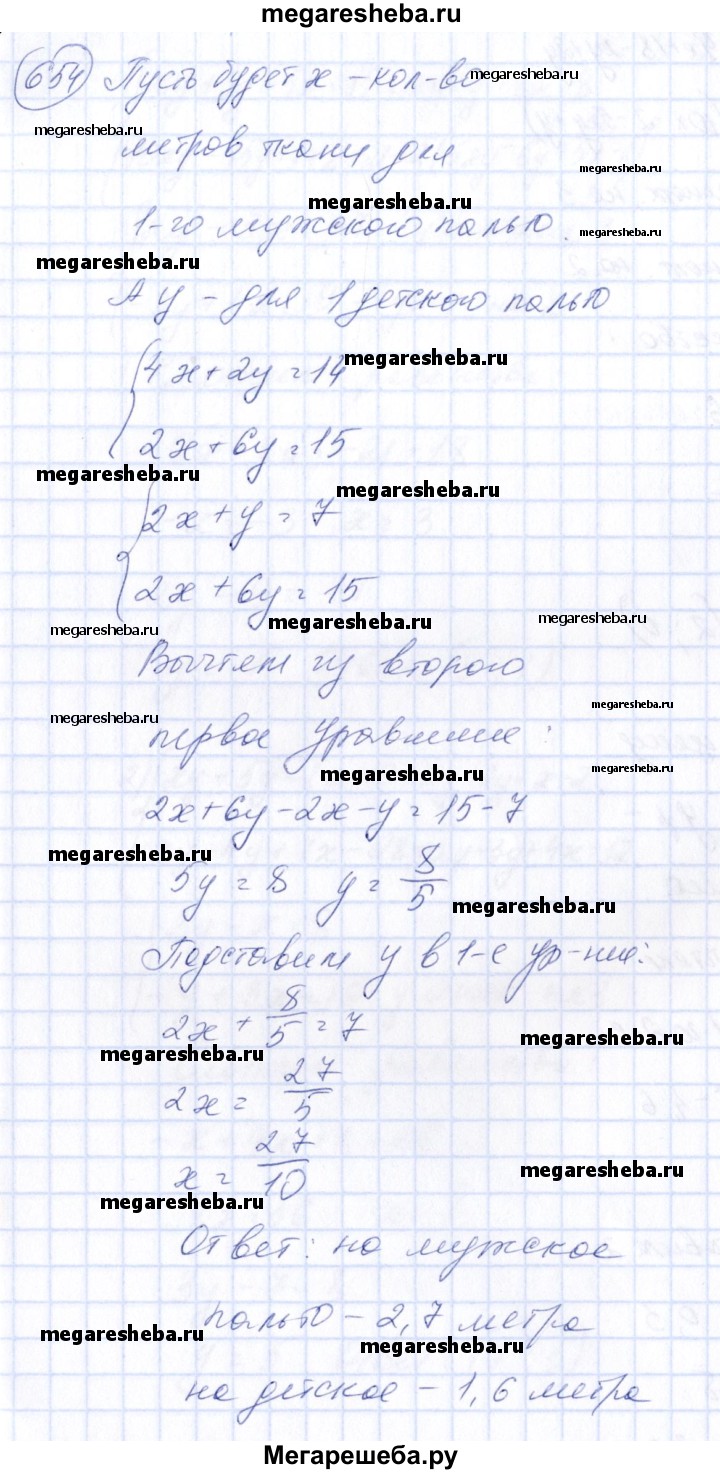 megaresheba.ru
654 Пусть будет x - кол-во
megaresheba.ru
megaresheba.ru
метров ткани для
megaresheba.ru
megaresheba.ru
1-го мужского пальто.
megaresheba.ru
megaresheba.ru
А y - для 1 детского пальто
4x + 2y = 14
megaresheba.ru
2x + 6y = 15
megaresheba.ru
megaresheba.ru
2x + y = 7
2x + 6y = 15
megaresheba.ru
megaresheba.ru
megaresheba.ru
Вычтем из второго
megaresheba.ru
megaresheba.ru
первое уравнение:
megaresheba.ru
megaresheba.ru
2x + 6y - 2x - y = 15 - 7
megaresheba.ru
5y = 8 y = 8/5
megaresheba.ru
Подставим y в 1-е ур-ние:
2x + 8/5 = 7
megaresheba.ru
megaresheba.ru
2x = 27/5
x = 27/10
megaresheba.ru
megaresheba.ru
Ответ: на мужское
пальто - 2,7 метра
megaresheba.ru
megaresheba.ru
на детское - 1,6 метра
Мегарешеба.ру